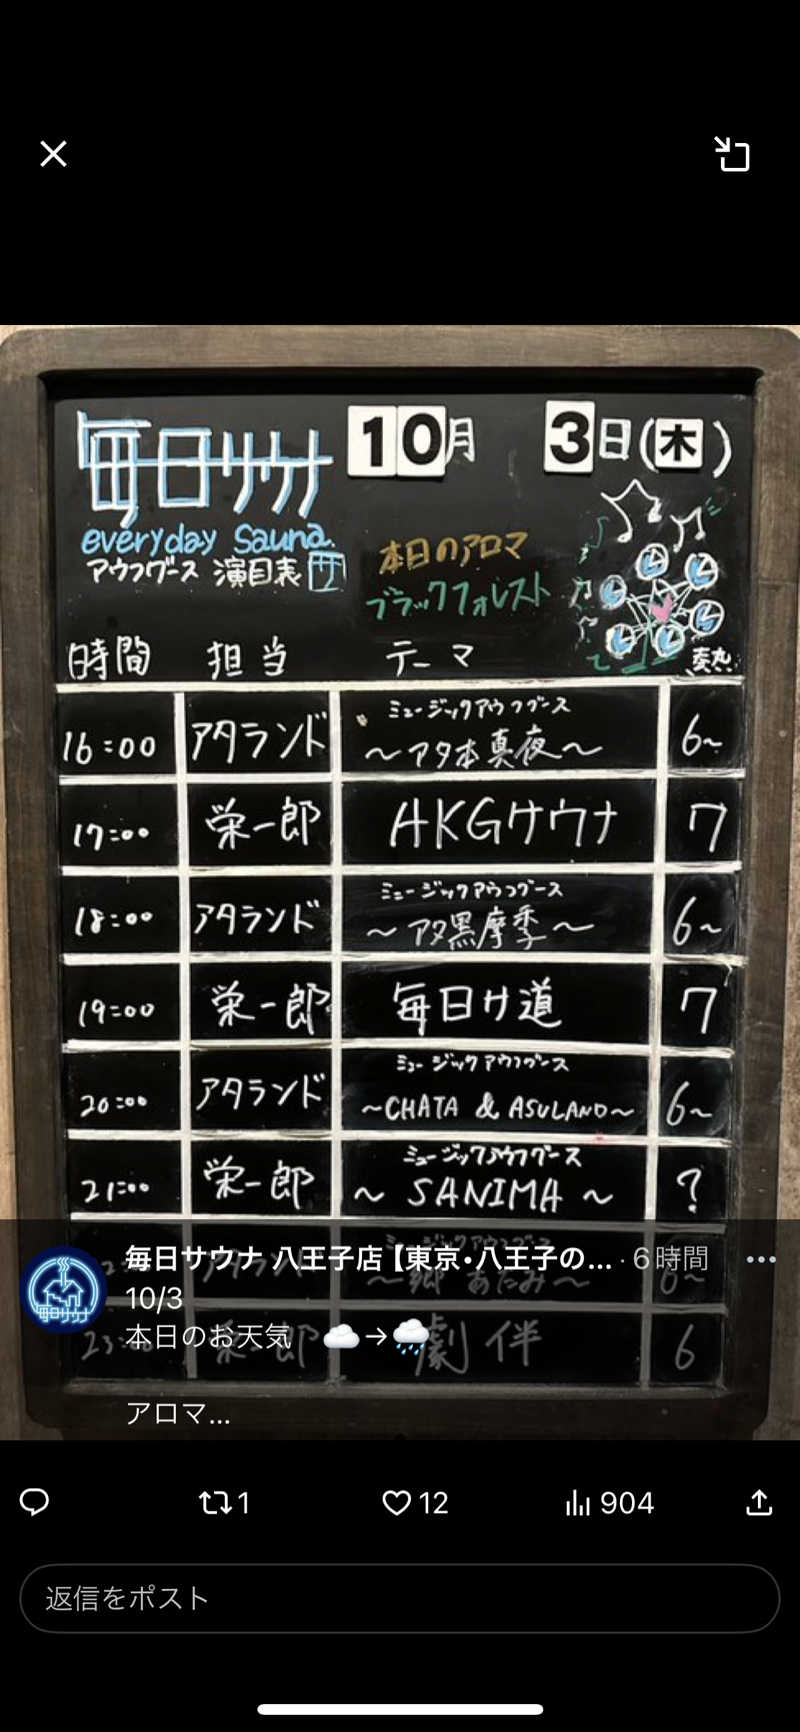 毎日サウナ
10月 3日(木)
everyday Sauna.
アウフグース 演目表 サ
本日のアロマ
ブラックフォレスト
時間 担当 テーマ 熱
16:00 アタランド ミュージックアウフグース ～アタ本真夜～ 6~
17:00 栄一郎 AKGサウナ 7
18:00 アタランド ミュージックアウフグース ～アタ黒摩季～ 6~
19:00 栄一郎 毎日サ道 7
20:00 アタランド ミュージックアウフグース ～CHATA & ASULAND～ 6~
21:00 栄一郎 ミュージックアウフグース ～ SANIMA ～ ?
アタランド ミュージックアウフグース ～郷 あたみ～ 6~
23:00 栄一郎 劇伴 6
毎日サウナ 八王子店【東京•八王子の... · 6時間
10/3
本日のお天気 ☁️→🌧️
アロマ...
1 12 904
返信をポスト